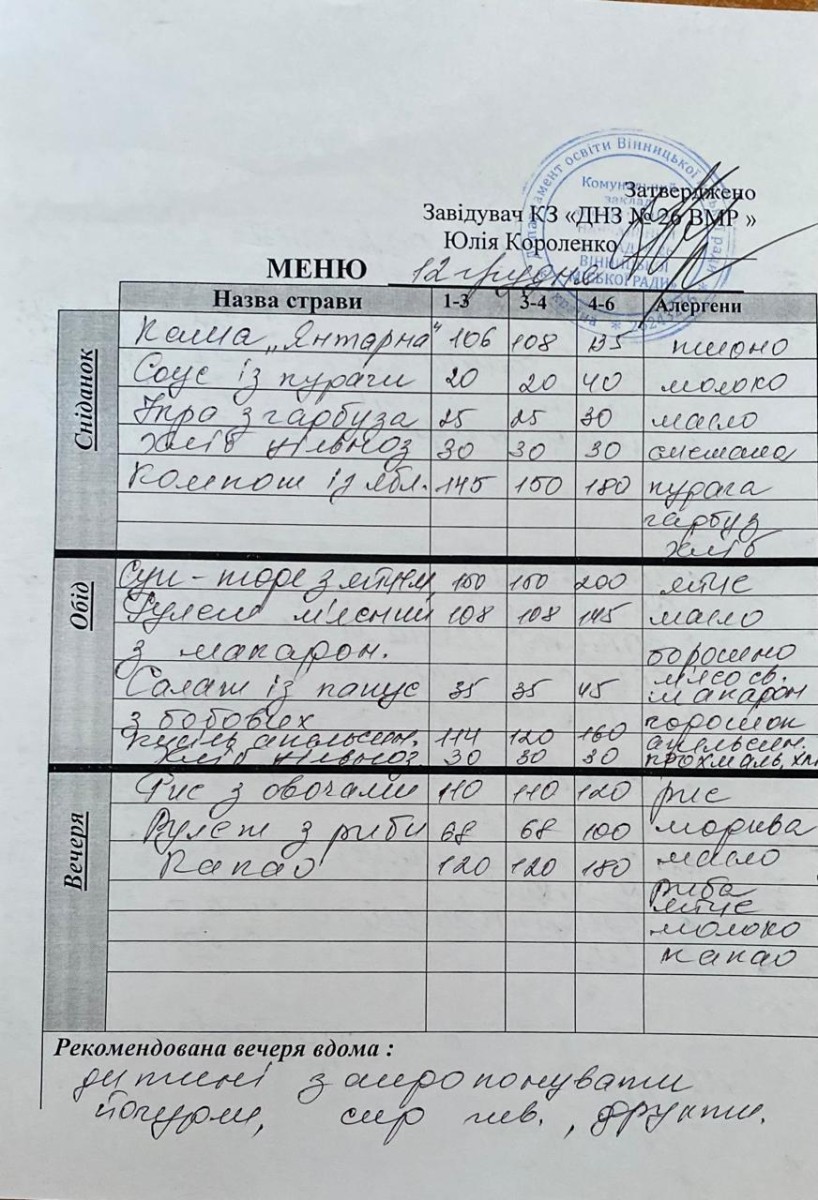 Департамент освіти Вінницької міської ради
Комунальний
заклад
ВІННИЦЬКОЇ
МІСЬКОЇ РАДИ
Затверджено
Завідувач КЗ «ДНЗ № 26 ВМР »
Юлія Короленко
МЕНЮ 12 грудня
Назва страви 1-3 3-4 4-6 Алергени
Сніданок
Каша „Янтарна“ 106 108 135 пшоно
Соус із кураги 20 20 40 молоко
Ікра з гарбуза 25 25 30 масло
Хліб цільноз 30 30 30 сметана
Компот із ябл. 145 150 180 курага
гарбуз
хліб
Обід
Суп-пюре з яйцем 150 150 200 яйце
Рулет м'ясний 108 108 145 масло
з макарон. борошно
мясо св.
Салат із капус 35 35 45 макарон
з бобових горошок
Кисіль апельсин. 114 120 160 апельсин.
Хліб цільноз 30 30 30 крохмаль, хл
Вечеря
Рис з овочами 110 110 120 рис
Рулет з риби 68 68 100 морква
Какао 120 120 180 масло
риба
яйце
молоко
какао
Рекомендована вечеря вдома :
дитині запропонувати
йогурт, сир кив., фрукти.